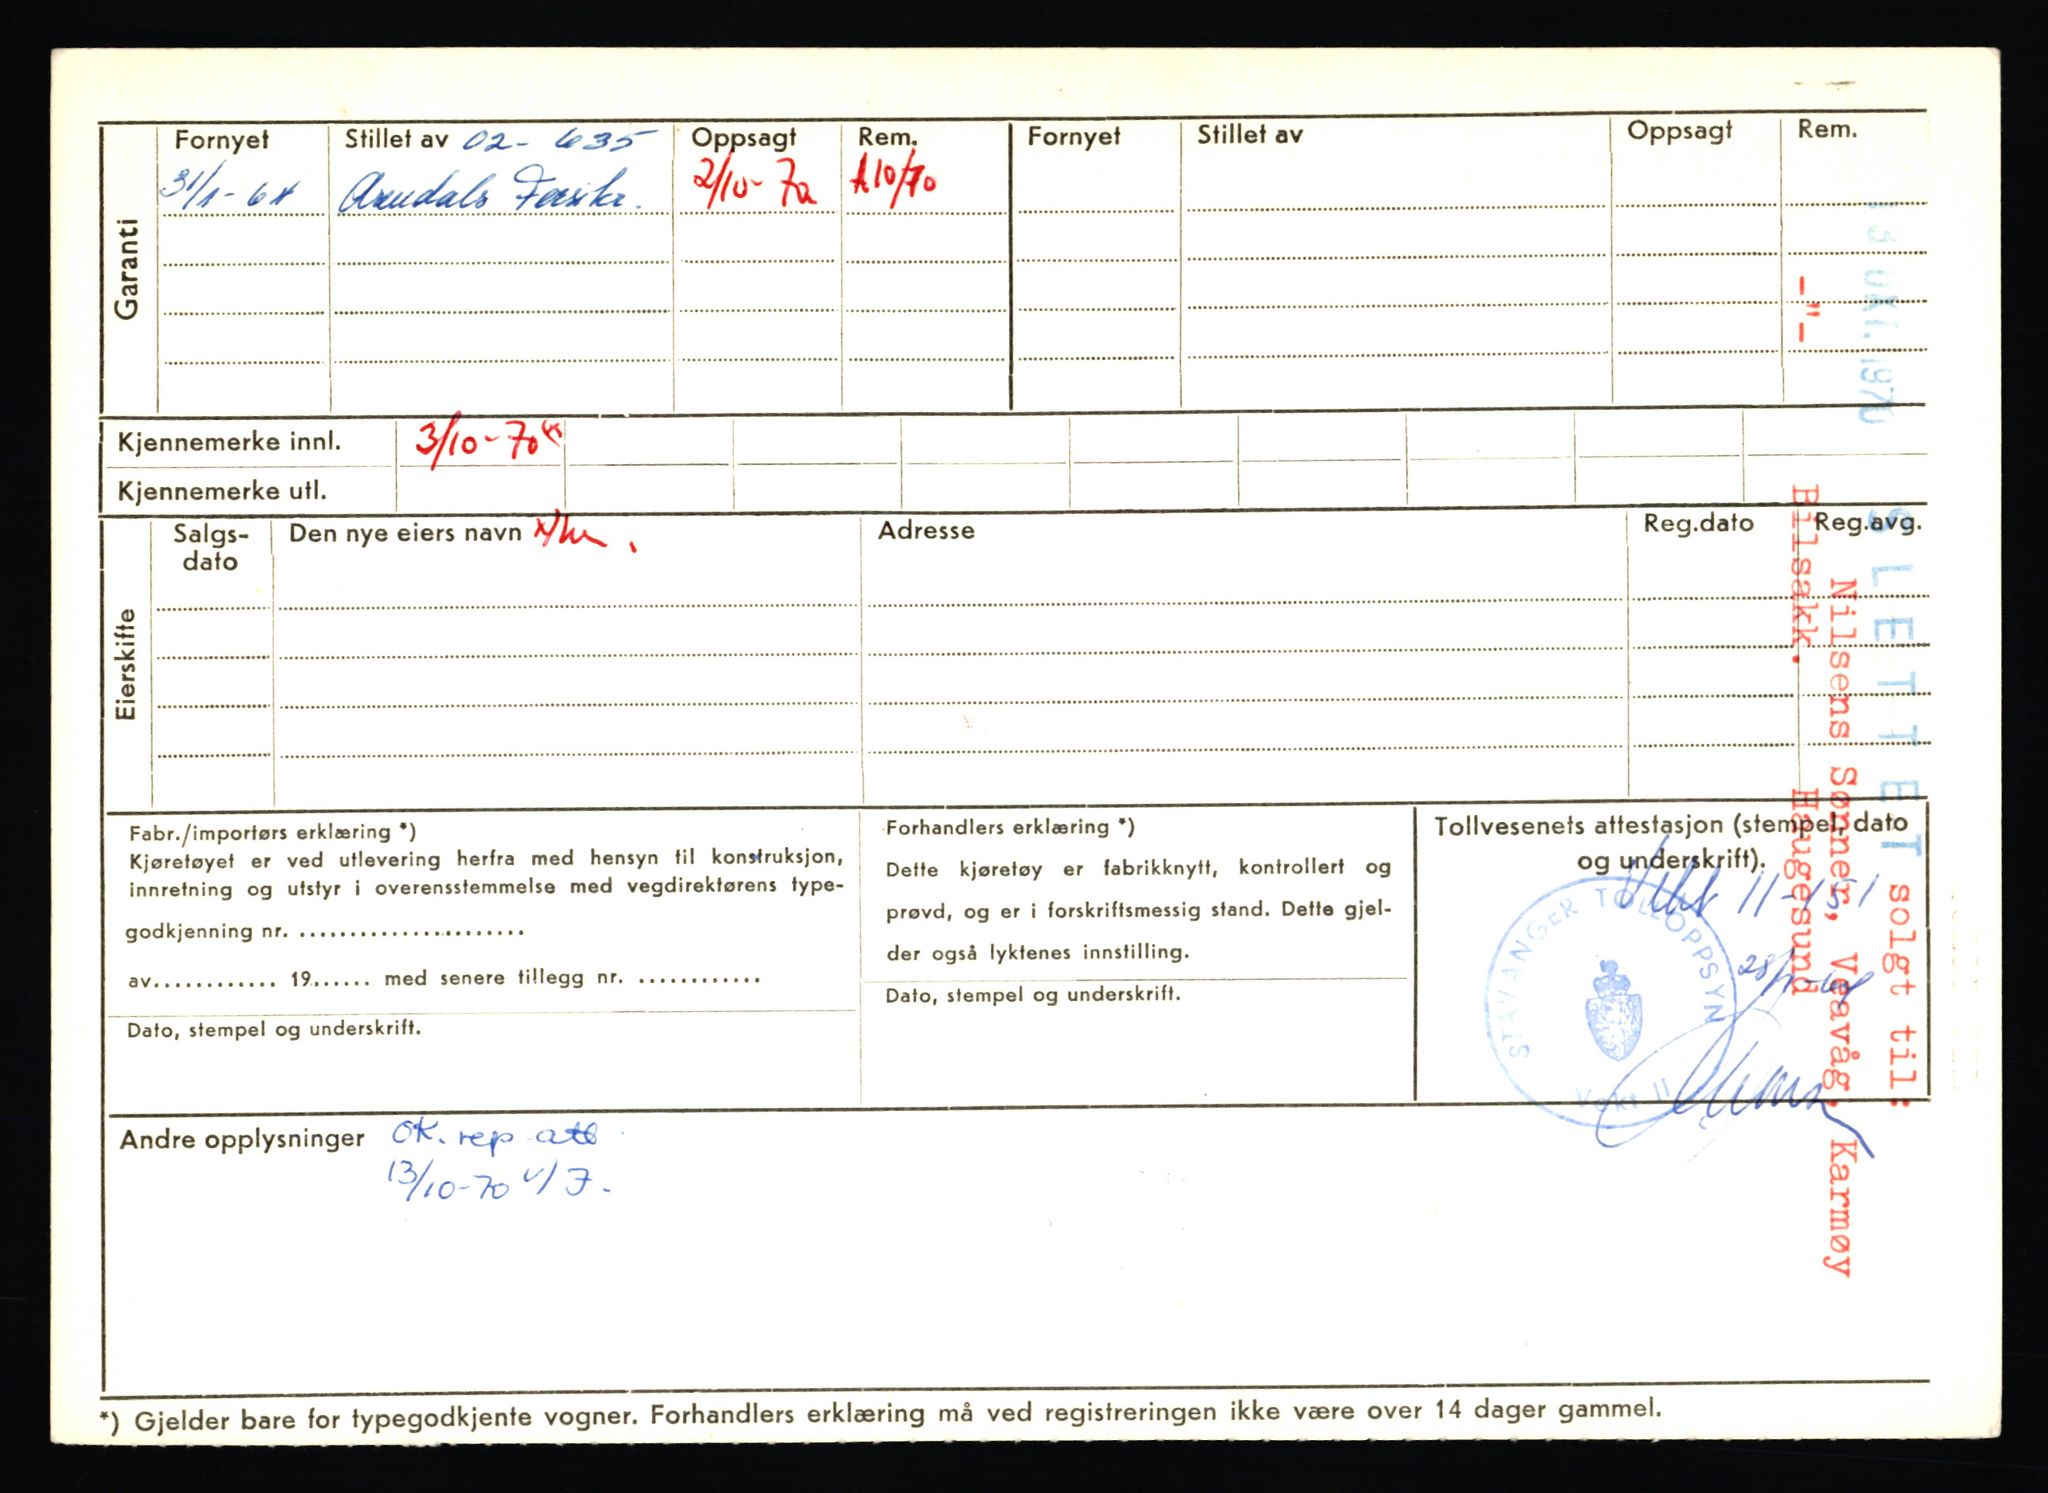 Garanti
Fornyet Stillet av 02-635 Oppsagt Rem. Fornyet Stillet av Oppsagt Rem.
31/1-64 Arendals Forsikr. 2/10-70 A10/70
-"-
Kjennemerke innl. 3/10-70
Kjennemerke utl.
Eierskifte
Salgs-dato Den nye eiers navn Adresse Reg.dato Reg.avg.
13 OKT. 1970
SLETTET solgt til:
Nilsens Sønner, Veavåg, Karmøy
Bilsakk. Haugesund
Fabr./importørs erklæring *)
Kjøretøyet er ved utlevering herfra med hensyn til konstruksjon,
innretning og utstyr i overensstemmelse med vegdirektørens type-
godkjenning nr. ......................
av............ 19...... med senere tillegg nr. ............
Dato, stempel og underskrift.
Forhandlers erklæring *)
Dette kjøretøy er fabrikknytt, kontrollert og
prøvd, og er i forskriftsmessig stand. Dette gjel-
der også lyktenes innstilling.
Dato, stempel og underskrift.
Tollvesenets attestasjon (stempel, dato
og underskrift).
11-151
STAVANGER TOLLOPPSYN
Vakt II
Andre opplysninger OK. rep att
13/10-70 v/J.
*) Gjelder bare for typegodkjente vogner. Forhandlers erklæring må ved registreringen ikke være over 14 dager gammel.